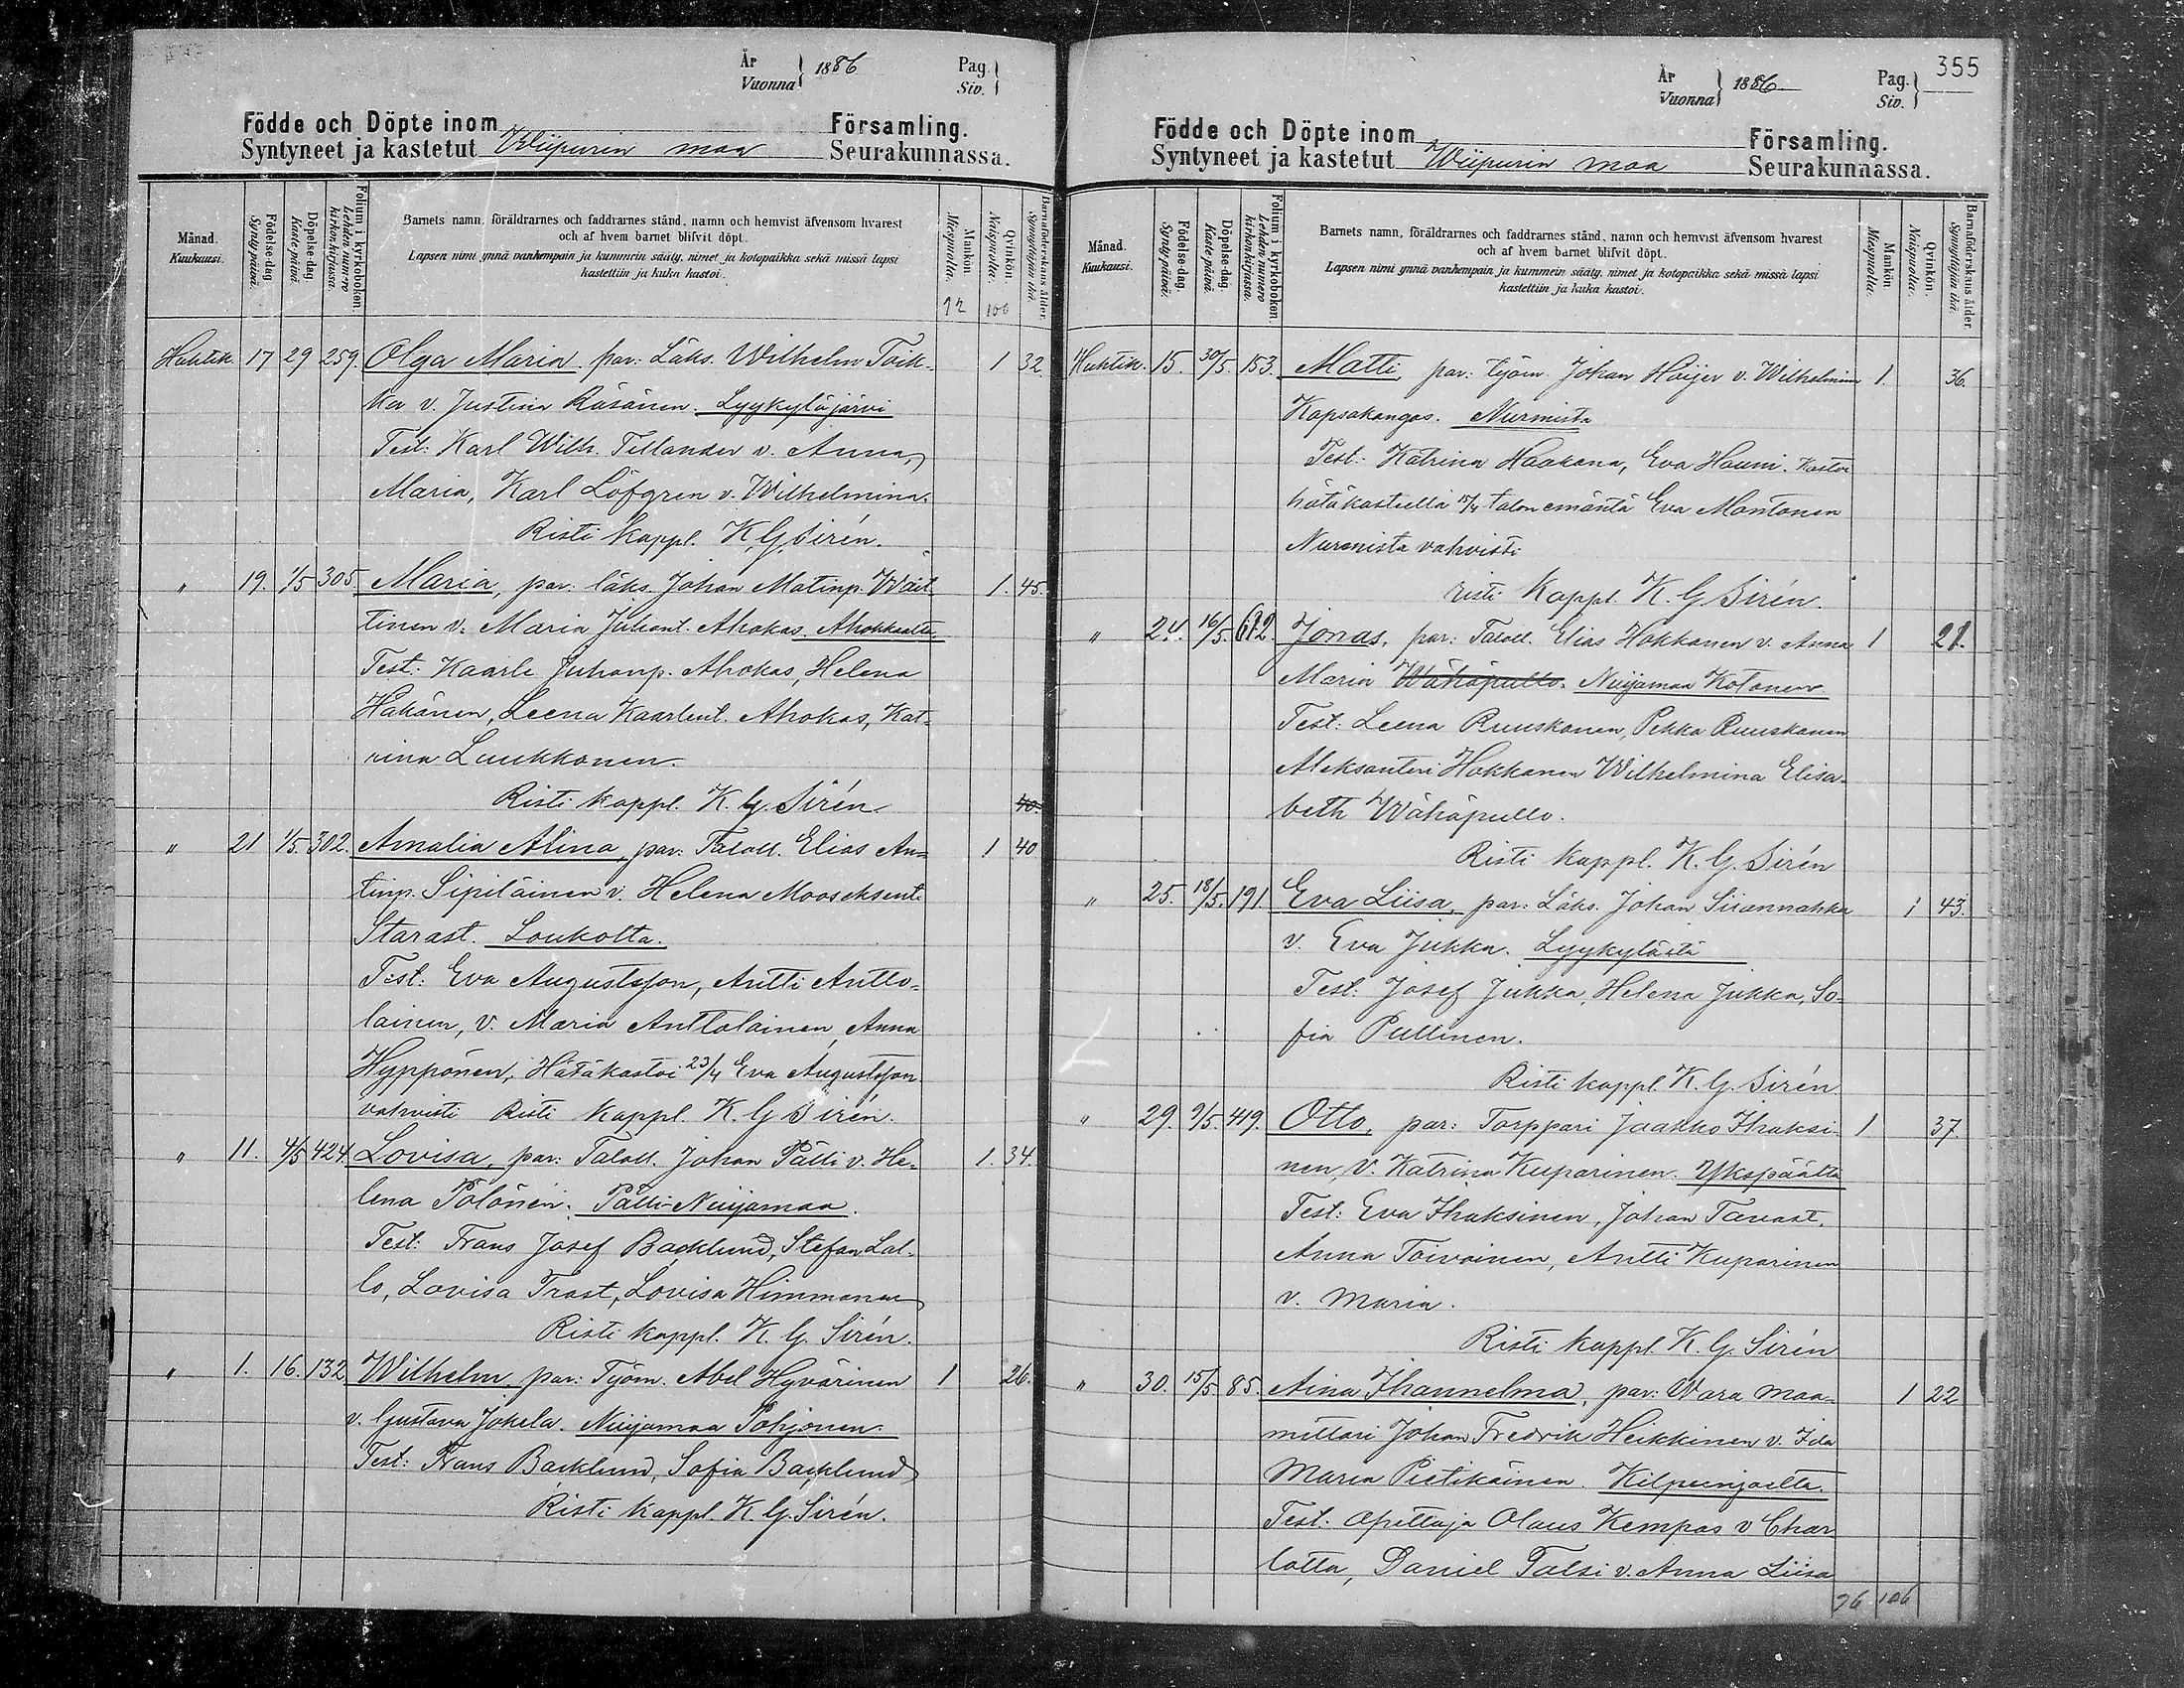 År
Vuonna 1886
Pag.
Siv.
Födde och Döpte inom Församling.
Syntyneet ja kastetut Wiipurin maa Seurakunnassa.
Månad. Kuukausi.
Födelse-dag. Synty-päivä.
Döpelse-dag. Kaste-päivä.
Folium i kyrkoboken. Lehden numero kirkonkirjassa.
Barnets namn, föräldrarnes och faddrarnes stånd, namn och hemvist äfvensom hvarest
och af hvem barnet blifvit döpt.
Lapsen nimi ynnä vanhempain ja kummein sääty, nimet ja kotopaikka sekä missä lapsi
kastettiin ja kuka kastoi.
Mankön. Miespuolia.
Qvinkön. Naispuolia.
Barnaföderskans ålder. Synnyttäjän ikä.
92 100
Huhtik. 17 29 259. Olga Maria. par: Läks. Wilhelm Toik- 1 32.
ka v. Justina Räsänen. Lyykyläjärvi
Test: Karl Wilh. Tillander v. Anna,
Maria, Karl Löfgren v. Wilhelmina.
Risti kappl. K. G. Sirén.
" 19. 1/5 305. Maria, par: läks. Johan Matinp. Wäit- 1. 45.
tinen v. Maria Juhont. Ahokas. Ahokkaalta
Test: Kaarle Juhanp. Ahokas, Helena
Hakänen, Leena Kaarlent. Ahokas, Kat-
rina Luukkonen.
Risti kappl. K. G. Sirén. 40.
" 21 1/5. 302. Amalia Alina, par: Taloll. Elias An- 1 40
tinp. Sipiläinen v. Helena Mooseksent.
Starast. Loukolta.
Test: Eva Augustsson, Antti Antto-
lainen, v. Maria Anttolainen, Anna
Hyppönen, Hätäkastoi 23/4 Eva Augustsson
vahvisti Risti kappl. K. G. Sirén.
" 11. 4/5 424. Lovisa, par: Taloll. Johan Pätti v. He- 1. 34.
lena Pölönen. Pätti-Nuijamaa.
Test: Frans Josef Backlund, Stefan Lal-
lo, Lovisa Trast, Lovisa Himmanen
Risti kappl. K. G. Sirén.
" 1. 16. 132 Wilhelm. par: Työm. Abel Hyvärinen 1 26.
v. Gustava Jokela. Nuijamaa Pohjonen.
Test: Frans Backlund, Sofia Backlund
Risti kappl. K. G. Sirén.
355
År
Vuonna 1886.
Pag.
Siv.
Födde och Döpte inom Församling.
Syntyneet ja kastetut Wiipurin maa Seurakunnassa.
Månad. Kuukausi.
Födelse-dag. Synty-päivä.
Döpelse-dag. Kaste-päivä.
Folium i kyrkoboken. Lehden numero kirkonkirjassa.
Barnets namn, föräldrarnes och faddrarnes stånd, namn och hemvist äfvensom hvarest
och af hvem barnet blifvit döpt.
Lapsen nimi ynnä vanhempain ja kummein sääty, nimet ja kotopaikka sekä missä lapsi
kastettiin ja kuka kastoi.
Mankön. Miespuolia.
Qvinkön. Naispuolia.
Barnaföderskans ålder. Synnyttäjän ikä.
Huhtik. 15. 30/5. 153. Matti, par: työm. Johan Höijer v. Wilhelmina 1. 36.
Kapsakangas. Nurmista
Test: Katrina Haakana, Eva Hauni. Kastoi
hätäkasteella 15/4 talon emäntä Eva Mantonen
Nurmista vahvisti
risti Kappl. K. G. Sirén.
" 24. 16/5. 612. Jonas, par: Taloll. Elias Hokkanen v. Anna 1 21.
Maria Wähäpullo. Nuijamaa Kotonen
Test: Leena Ruuskanen, Pekka Ruuskanen
Aleksanteri Hokkanen Wilhelmina Elisa-
beth Wähäpullo.
Risti kappl. K. G. Sirén
" 25. 18/5. 191. Eva Liisa, par: Läks. Johan Sirannahka 1 43.
v. Eva Jukka. Lyykylästä
Test: Josef Jukka, Helena Jukka, So-
fia Pullinen.
Risti kappl. K. G. Sirén.
" 29. 9/5. 419. Otto, par: Torppari Jaakko Ihaksi- 1 37.
nen, v. Katrina Kuparinen. Ykspäältä
Test: Eva Ihaksinen, Johan Tavast,
Anna Toivoinen, Antti Kuparinen
v. Maria.
Risti kappl. K. G. Sirén
" 30. 15/5 85. Aina Jhannelma, par: Wara maa- 1 22
mittari Johan Fredrik Heikkinen v. Ida
Maria Pietikäinen. Kilpeenjoelta.
Test: opettaja Olaus Kempas v Char
lotta, Daniel Talsi v. Anna Liisa
96 106